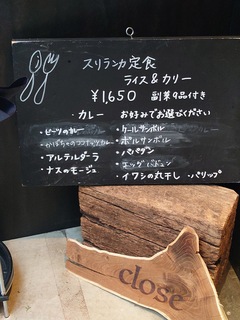 スリランカ定食
ライス & カリー
¥1,650 副菜9品付き
・カレー お好みでお選びください
・ビーツのカレー
・かぼちゃのココナッツカレー
・アルテルダーラ
・ナスのモージュ
・ケールサンボル
・ポルサンボル
・パパダン
・エッグ
・イワシの丸干し ・パリップ
close